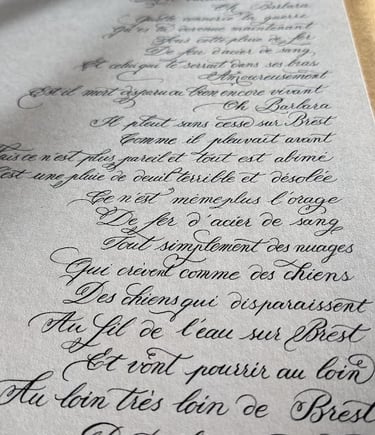 Oh Barbara
Quelle connerie la guerre
Qu'es tu devenue maintenant
Sous cette pluie de fer
De feu d'acier de sang
Et celui qui te serrait dans ses bras
Amoureusement
Est il mort disparu ou bien encore vivant
Oh Barbara
Il pleut sans cesse sur Brest
Comme il pleuvait avant
ais ce n'est plus pareil et tout est abimé
est une pluie de deuil terrible et désolée
Ce n'est même plus l'orage
De fer d'acier de sang
Tout simplement des nuages
Qui crèvent comme des chiens
Des chiens qui disparaissent
Au fil de l'eau sur Brest
Et vont pourrir au loin
Au loin très loin de Brest